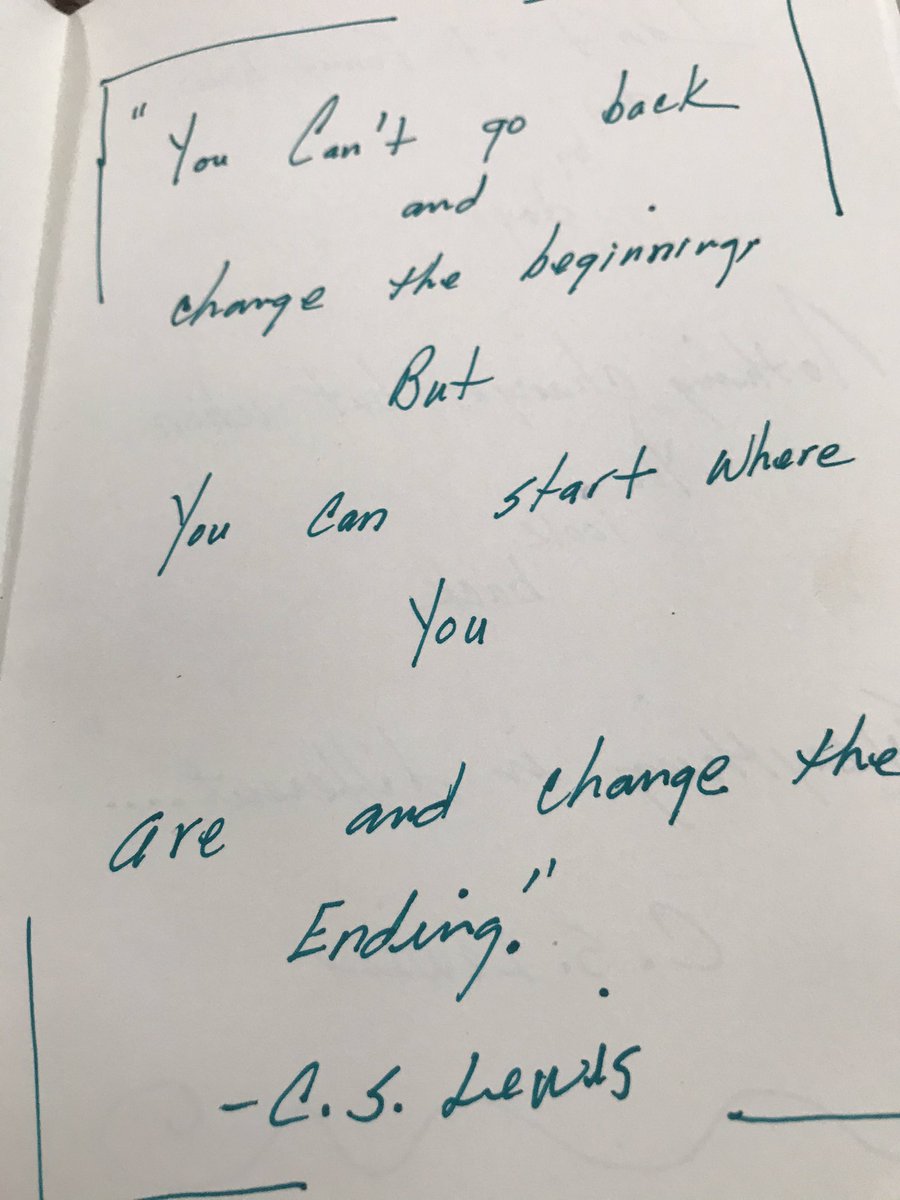 "You Can't go back
and
change the beginning,
But
You Can start where
You
are and change the
Ending."
-C.S. Lewis